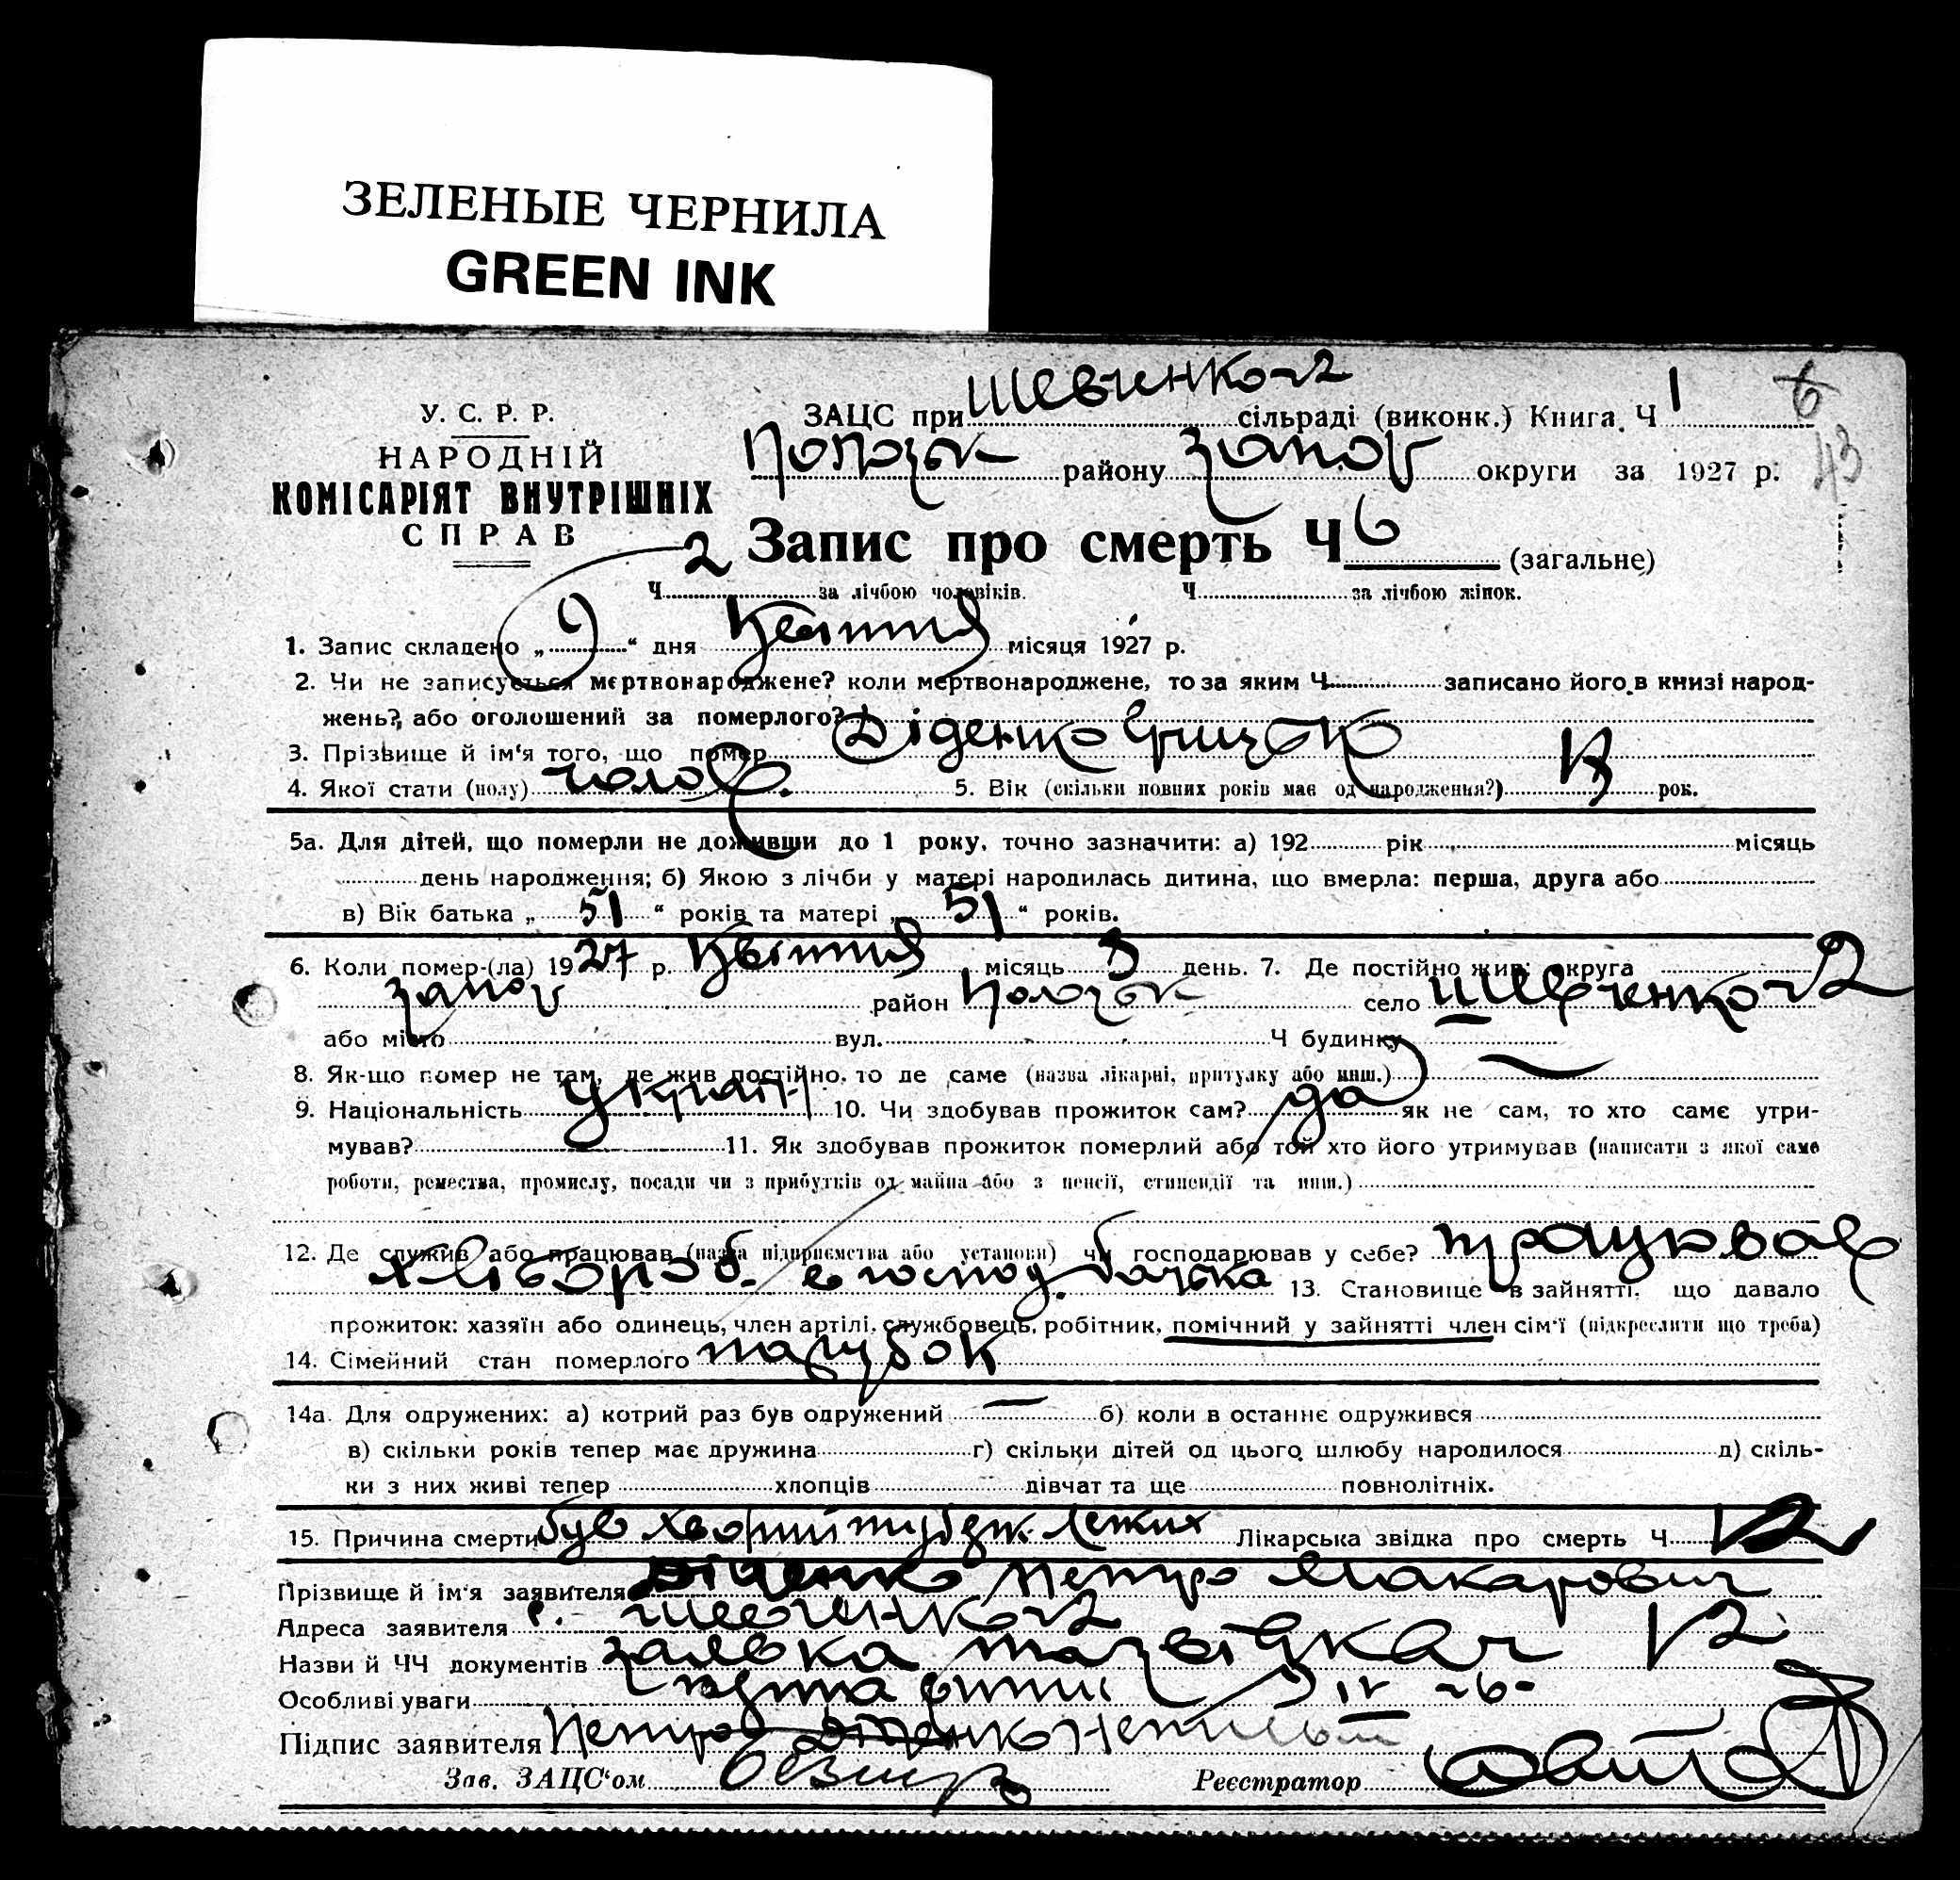 ЗЕЛЕНЫЕ ЧЕРНИЛА
GREEN INK
У. С. Р. Р.
НАРОДНІЙ
КОМІСАРІЯТ ВНУТРІШНІХ
СПРАВ
ЗАЦС при Шевченков сільраді (виконк.) Книга Ч 1 6
43
району Запор округи за 1927 р.
2 Запис про смерть Ч 6 (загальне)
Ч за лічбою чоловіків. Ч за лічбою жінок.
1. Запис складено „ 9 “ дня Квітня місяця 1927 р.
2. Чи не записується мертвонароджене? коли мертвонароджене, то за яким Ч записано його в книзі народ-
жень? або оголошений за померлого?
3. Прізвище й ім'я того, що помер Діденко Грицько
4. Якої стати (полу) чолов. 5. Вік (скільки повних років має од народження?) рок.
5а. Для дітей, що померли не доживши до 1 року, точно зазначити: а) 192 рік місяць
день народження; б) Якою з лічби у матері народилась дитина, що вмерла: перша, друга або
в) Вік батька „ 51 “ років та матері „ 51 “ років.
6. Коли помер-(ла) 1927 р. Квітня місяць 3 день. 7. Де постійно жив: округа
Запор район село Шевченков
або місто вул. Ч будинку
8. Як-що помер не там, де жив постійно, то де саме (назва лікарні, притулку або инш.) —
9. Національність україн 10. Чи здобував прожиток сам? да як не сам, то хто саме утри-
мував? 11. Як здобував прожиток померлий або той хто його утримував (написати з якої саме
роботи, ремества, промислу, посади чи з прибутків од майна або з пенсії, стипендії та инш.)
12. Де служив або працював (назва підприємства або установи) чи господарював у себе? працював
хлібороб. в господ. батька 13. Становище в зайнятті, що давало
прожиток: хазяїн або одинець, член артілі, службовець, робітник, помічний у зайнятті член сім'ї (підкреслити що треба)
14. Сімейний стан померлого парубок
14а. Для одружених: а) котрий раз був одружений — б) коли в останнє одружився
в) скільки років тепер має дружина г) скільки дітей од цього шлюбу народилося д) скіль-
ки з них живі тепер хлопців дівчат та ще повнолітніх.
15. Причина смерти був хворий туберк. легких Лікарська звідка про смерть Ч
Прізвище й ім'я заявителя Діденко Петро Макарович
Адреса заявителя с. Шевченков
Назви й ЧЧ документів заявка
Особливі уваги
Підпис заявителя Петро Діденко
Зав. ЗАЦС'ом Реєстратор